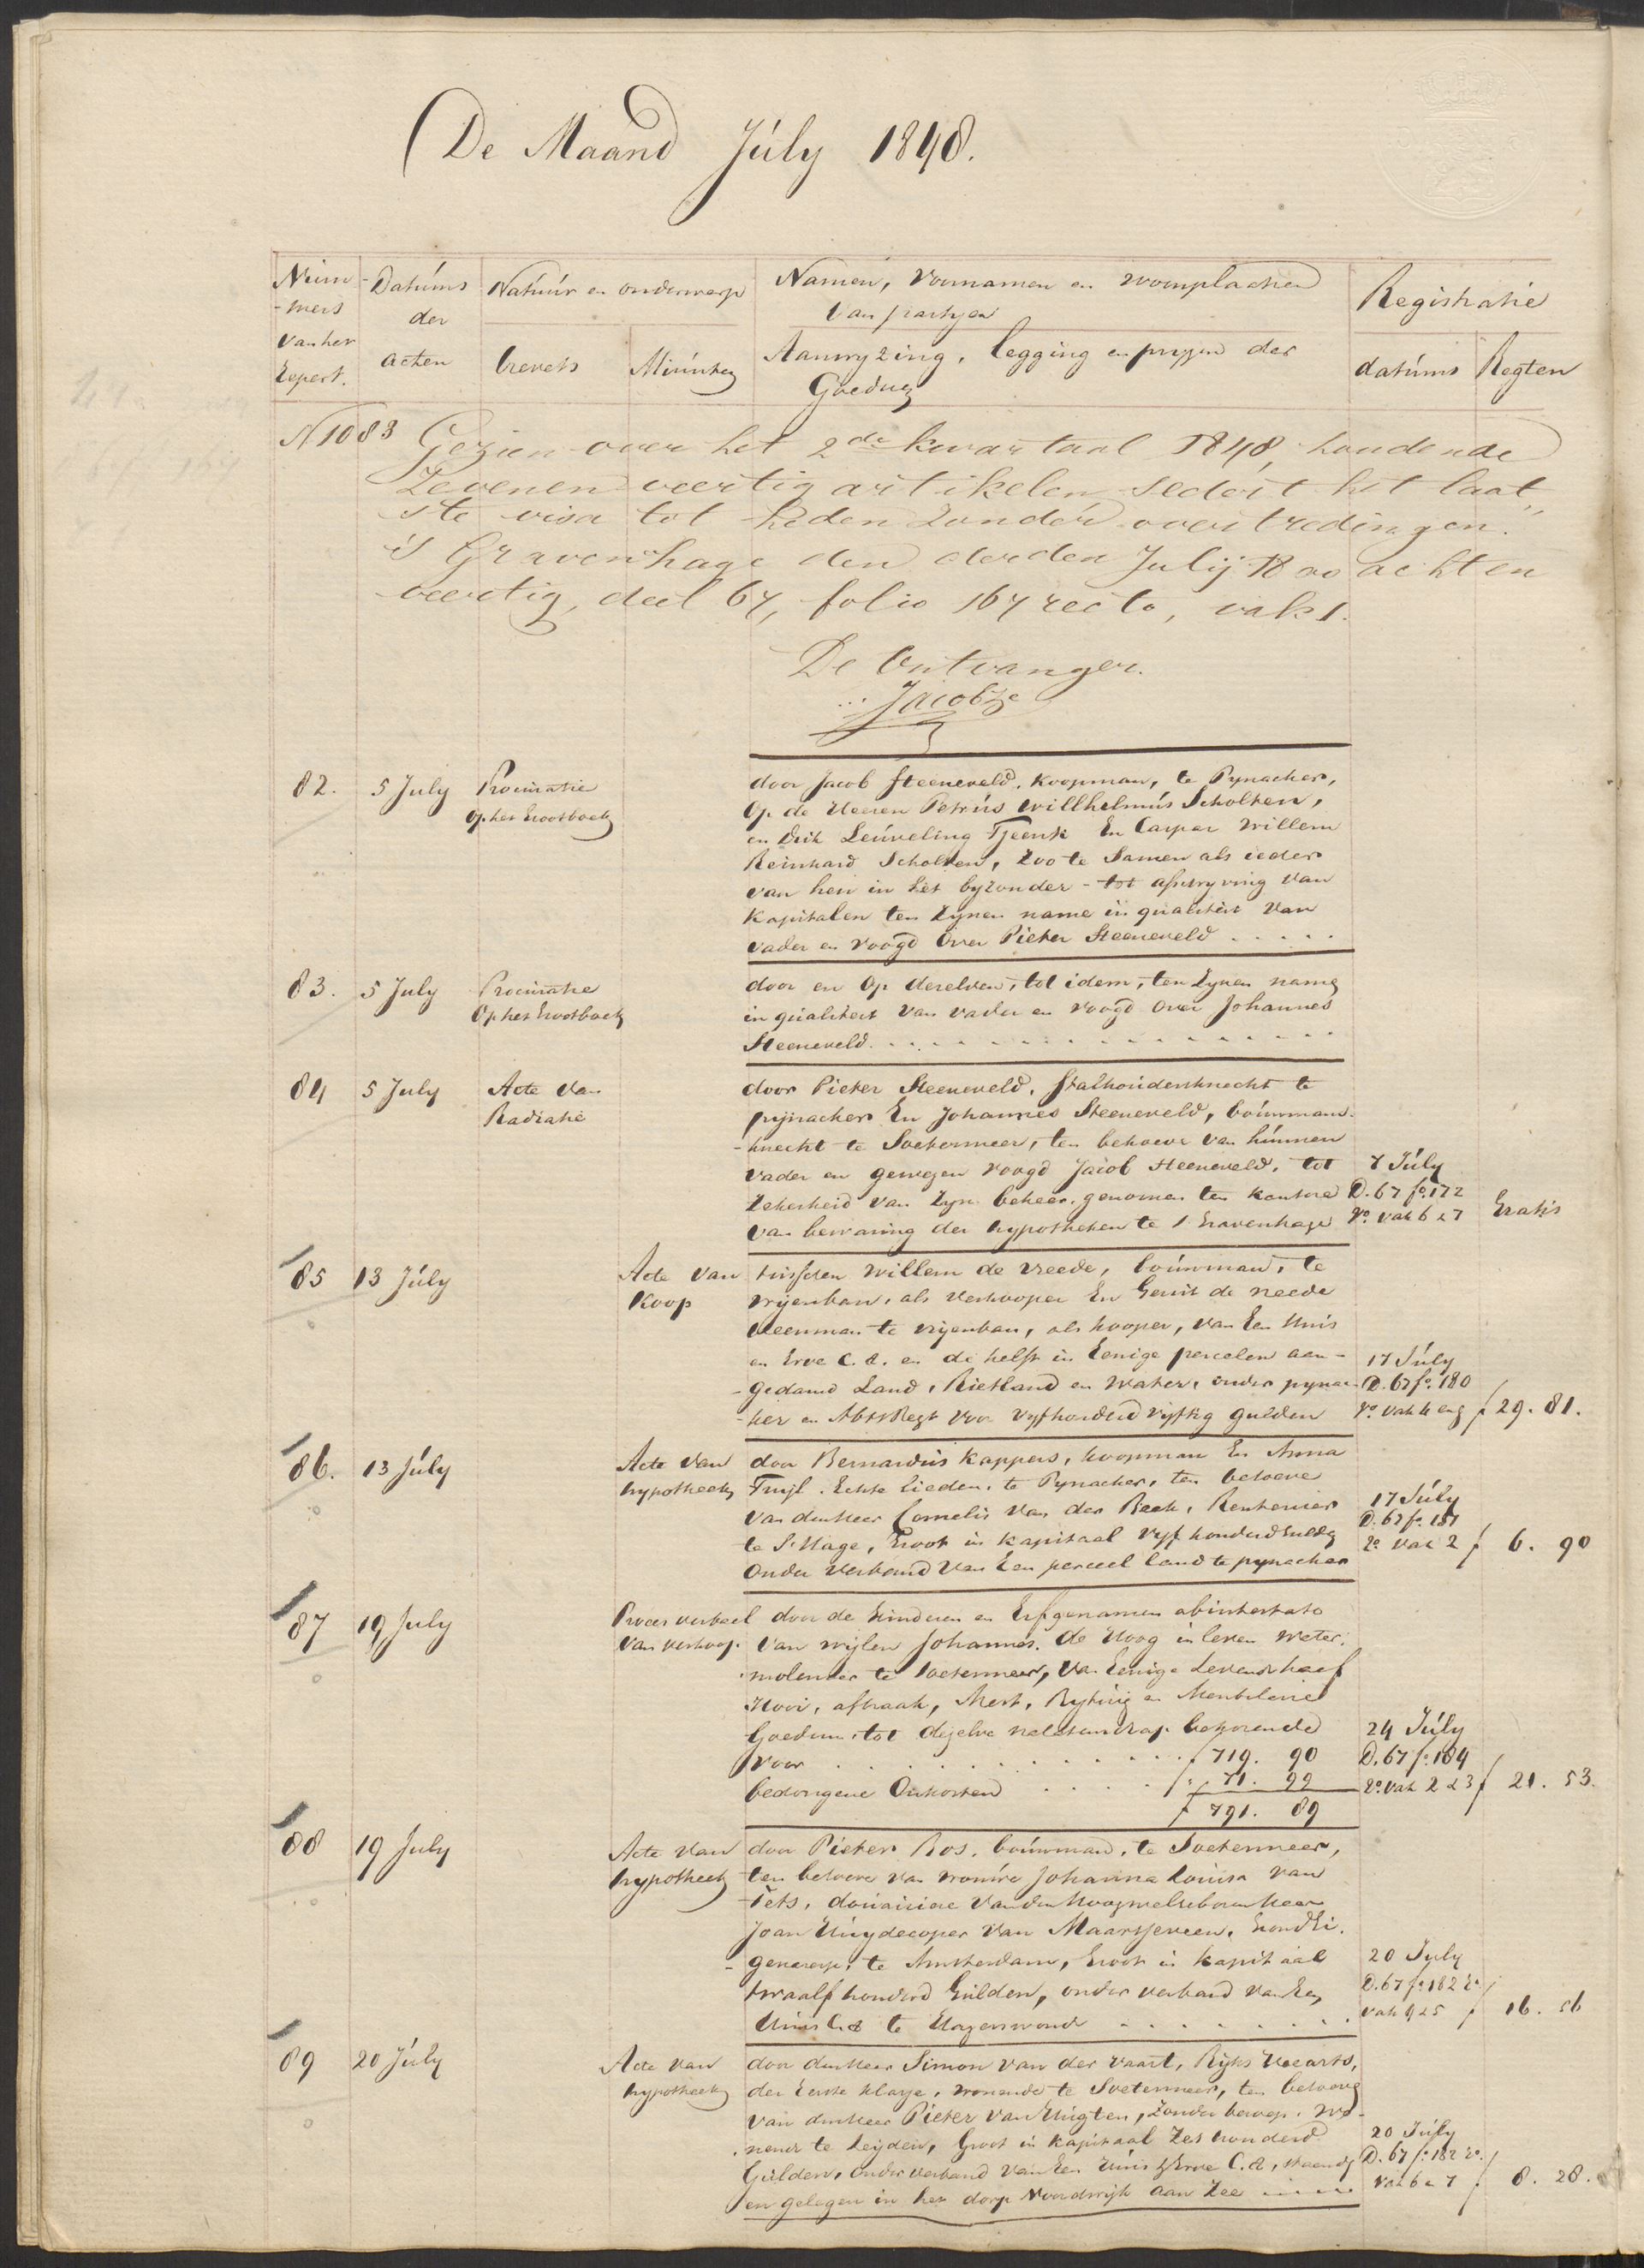 De Maand July 1848.
Num-
-mers
van het
Repert.
Datúms
der
acten
Natúúr en onderwerp
brevets
Minúten
Namen, Voornamen en woonplaatsen
van partyen
Aanwyzing, legging en pryzen der
Goederen
Registratie
datúms
Regten
N 1083
Gezien over het 2de kwartaal 1848, houdende
Zevenenveertig artikelen sedert het laat
ste visa tot heden zonder overtredingen.
's Gravenhage den derden Julij 18 00 acht en
veertig, deel 67, folio 167 recto, vak 1.
De Ontvanger.
Jacobze
82. 5 July Procuratie
op het Grootboek
door Jacob Steeneveld, koopman, te Pynacker,
Op de Heeren Petrús Willhelmús Scholten,
en Dirk Leúveling Tjeenk En Caspar Willem
Reinhard Scholten, Zoo te Samen als ieder
van hen in het byzonder - tot afschryving van
Kapitalen ten Zynen name in qualiteit van
vader en voogd Over Pieter Steeneveld . . . . .
83. 5 July Procuratie
Op het Grootboek
door en Op dezelven, tot idem, ten Zynen name
in qualiteit van vader en voogd Over Johannes
Steeneveld.
84 5 July Acte van
Radiatie
door Pieter Steeneveld, Stalhoudersknecht te
pijnacker En Johannes Steeneveld, boúwmans-
-knecht te Soetermeer, ten behoeve van húnnen
vader en gewezen voogd Jacob Steeneveld, tot
Zekerheid van Zyn beheer, genomen ten kantore
van bewaring der hypotheken te 's Gravenhage
7 Júly
D. 67 fo. 172
Vo. vak 6 & 7 Gratis
85 13 Júly Acte van
Koop
tusschen Willem de Vreede, boúwman, te
Vrijenban, als Verkooper En Gerrit de Vreede
veenman te vrijenban, als kooper, van Een Huis
en Erve C. a. en de helft in Eenige percelen aan-
-gedamd Land, Rietland en Water, onder pynac
-ker en Abtsregt voor vyfhonderd vijftig gulden
17 Júly
D. 67 fo. 180
Vo. vak 4 en 5 f 29. 81.
86. 13 Júly Acte van
hypotheek
door Bernardús Kappers, koopman En Anna
Echte lieden, te Pynacker, ten behoeve
van den Heer Cornelis van der Beek, Rentenier
te S'Hage, Groot in kapitaal vyf honderd Gulden
Onder Verband van Een perceel land te pynacker
17 Júly
D. 67 fo. 181
Vo. vak 2 f 6. 90
87 19 July Proces verbaal
van verkoop.
door de kinderen en Erfgenamen abintestato
van wijlen Johannes de Hoog in leven water-
molenaar te Soetermeer, van Eenige Levend have
Hooi, afbraak, Mest, Rytuig en Meubelaire
Goederen, tot dezelve nalatenschap behoorende
voor . . . . . . . . . f 719. 90
bedongene Onkosten . . . . f 71. 99
f 791. 89
24 Júly
D. 67 fo. 184
Vo. vak 2 & 3 f 21. 53.
88 19 July Acte van
hypotheek
door Pieter Bos, boúwman, te Soetermeer,
ten behoeve van vroúwe Johanna Louisa van
Tets, douairiere van den Hoogwelgeboren Heer
Joan Húydecoper van Maarsseveen, Grond Ei-
-genaresse, te Amsterdam, Groot in Kapitaal
twaalf honderd Gúlden, onder verband van Een
Húis C. a te Hazerswoude . . . . . . . .
20 July
D. 67 fo. 182 Vo.
vak 4 & 5 f 16. 56
89 20 Júly Acte van
hypotheek
door den Heer Simon van der Vaart, Ryks Veearts,
der Eerste klasse, wonende te Soetermeer, ten behoeve
van den Heer Pieter van Húgten, Zonder beroep, wo-
nende te Leyden, Groot in kapitaal Zes honderd
Gúlden, onder verband van Een Húis & Erve C. a, staande
en gelegen in het dorp Noordwijk aan Zee
20 Júly
D. 67 fo. 182 Vo.
vak 6 & 7 f 8. 28.